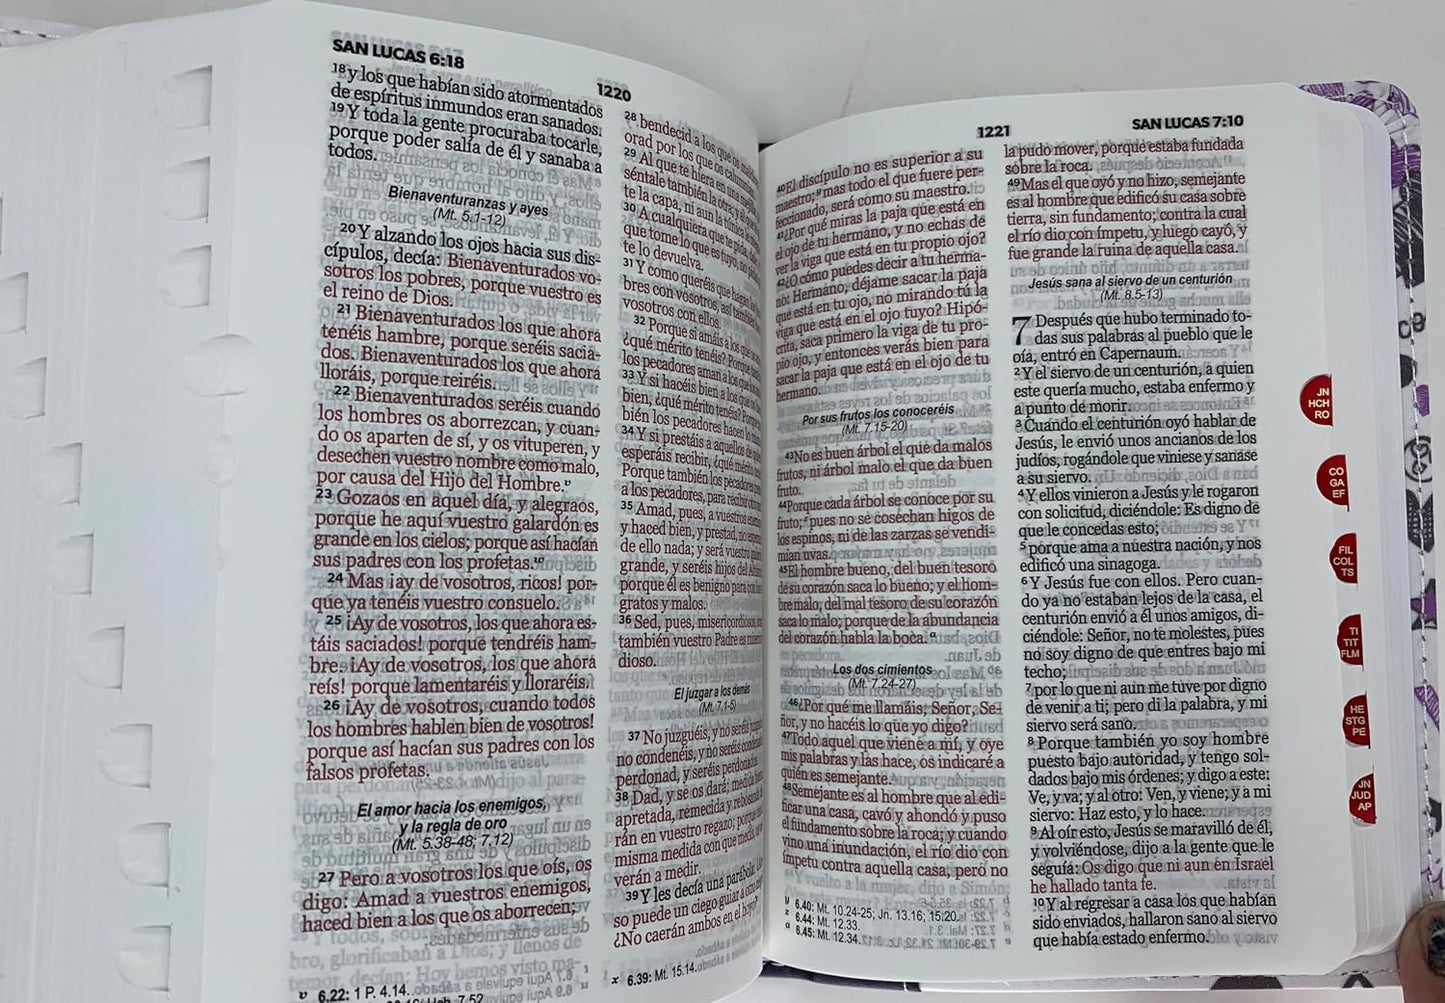 SAN LUCAS 6:18
1220
18 y los que habían sido atormentados
de espíritus inmundos eran sanados.
19 Y toda la gente procuraba tocarle,
porque poder salía de él y sanaba a
todos.
Bienaventuranzas y ayes
(Mt. 5.1-12)
20 Y alzando los ojos hacia sus dis-
cípulos, decía: Bienaventurados vo-
sotros los pobres, porque vuestro es
el reino de Dios.
21 Bienaventurados los que ahora
tenéis hambre, porque seréis sacia-
dos. Bienaventurados los que ahora
lloráis, porque reiréis.
22 Bienaventurados seréis cuando
los hombres os aborrezcan, y cuan-
do os aparten de sí, y os vituperen, y
desechen vuestro nombre como malo,
por causa del Hijo del Hombre.v
23 Gozaos en aquel día, y alegraos,
porque he aquí vuestro galardón es
grande en los cielos; porque así hacían
sus padres con los profetas.w
24 Mas ¡ay de vosotros, ricos! por-
que ya tenéis vuestro consuelo.
25 ¡Ay de vosotros, los que ahora es-
táis saciados! porque tendréis ham-
bre. ¡Ay de vosotros, los que ahora
reís! porque lamentaréis y lloraréis.
26 ¡Ay de vosotros, cuando todos
los hombres hablen bien de vosotros!
porque así hacían sus padres con los
falsos profetas.
El amor hacia los enemigos,
y la regla de oro
(Mt. 5.38-48; 7.12)
27 Pero a vosotros los que oís, os
digo: Amad a vuestros enemigos,
haced bien a los que os aborrecen;
v 6.22: 1 P. 4.14.
7.52
28 bendecid a los que os
orad por los que os
29 Al que te hiera en una
séntale también la otra; y al que
te la capa, ni aun la túnica
30 A cualquiera que te pida,
que tome lo que es tuyo, no
te lo devuelva.
31 Y como queréis que hagan los
bres con vosotros, así también
vosotros con ellos.
32 Porque si amáis a los que
¿qué mérito tenéis? Porque
los pecadores aman a los que
33 Y si hacéis bien a los que
bien, ¿qué mérito tenéis? Porque
bién los pecadores hacen lo
34 Y si prestáis a aquellos de
esperáis recibir, ¿qué mérito
Porque también los pecadores
a los pecadores, para recibir otro
35 Amad, pues, a vuestros
y haced bien, y prestad, no
de ello nada; y será vuestro
grande, y seréis hijos del
porque él es benigno para con
gratos y malos.
36 Sed, pues, misericordiosos,
también vuestro Padre es
dioso.
El juzgar a los demás
(Mt. 7.1-5)
37 No juzguéis, y no seréis
no condenéis, y no seréis
perdonad, y seréis
38 Dad, y se os dará; medida
apretada, remecida y
rán en vuestro regazo; porque
misma medida con que
verán a medir.
39 Y les decía una parábola:
so puede un ciego guiar a otro
¿No caerán ambos en el hoyo?
x 6.39: Mt. 15.14.
1221
SAN LUCAS 7:10
40 El discípulo no es superior a su
maestro;y mas todo el que fuere per-
feccionado, será como su maestro.
41 ¿Por qué miras la paja que está en
el ojo de tu hermano, y no echas de
ver la viga que está en tu propio ojo?
42 ¿O cómo puedes decir a tu herma-
no: Hermano, déjame sacar la paja
que está en tu ojo, no mirando tú la
viga que está en el ojo tuyo? Hipó-
crita, saca primero la viga de tu pro-
pio ojo, y entonces verás bien para
sacar la paja que está en el ojo de tu
hermano.
Por sus frutos los conoceréis
(Mt. 7.15-20)
43 No es buen árbol el que da malos
frutos, ni árbol malo el que da buen
fruto.
44 Porque cada árbol se conoce por su
fruto;z pues no se cosechan higos de
los espinos, ni de las zarzas se vendi-
mian uvas.
45 El hombre bueno, del buen tesoro
de su corazón saca lo bueno; y el hom-
bre malo, del mal tesoro de su corazón
saca lo malo; porque de la abundancia
del corazón habla la boca.a
Los dos cimientos
(Mt. 7.24-27)
46 ¿Por qué me llamáis, Señor, Se-
ñor, y no hacéis lo que yo digo?
47 Todo aquel que viene a mí, y oye
mis palabras y las hace, os indicaré a
quién es semejante.
48 Semejante es al hombre que al edi-
ficar una casa, cavó y ahondó y puso
el fundamento sobre la roca; y cuando
vino una inundación, el río dio con
ímpetu contra aquella casa, pero no
y 6.40: Mt. 10.24-25; Jn. 13.16; 15.20.
z 6.44: Mt. 12.33.
a 6.45: Mt. 12.34.
la pudo mover, porque estaba fundada
sobre la roca.
49 Mas el que oyó y no hizo, semejante
es al hombre que edificó su casa sobre
tierra, sin fundamento; contra la cual
el río dio con ímpetu, y luego cayó, y
fue grande la ruina de aquella casa.
Jesús sana al siervo de un centurión
(Mt. 8.5-13)
7 Después que hubo terminado to-
das sus palabras al pueblo que le
oía, entró en Capernaum.
2 Y el siervo de un centurión, a quien
este quería mucho, estaba enfermo y
a punto de morir.
3 Cuando el centurión oyó hablar de
Jesús, le envió unos ancianos de los
judíos, rogándole que viniese y sanase
a su siervo.
4 Y ellos vinieron a Jesús y le rogaron
con solicitud, diciéndole: Es digno de
que le concedas esto;
5 porque ama a nuestra nación, y nos
edificó una sinagoga.
6 Y Jesús fue con ellos. Pero cuan-
do ya no estaban lejos de la casa, el
centurión envió a él unos amigos, di-
ciéndole: Señor, no te molestes, pues
no soy digno de que entres bajo mi
techo;
7 por lo que ni aun me tuve por digno
de venir a ti; pero di la palabra, y mi
siervo será sano.
8 Porque también yo soy hombre
puesto bajo autoridad, y tengo sol-
dados bajo mis órdenes; y digo a este:
Ve, y va; y al otro: Ven, y viene; y a mi
siervo: Haz esto, y lo hace.
9 Al oír esto, Jesús se maravilló de él,
y volviéndose, dijo a la gente que le
seguía: Os digo que ni aun en Israel
he hallado tanta fe.
10 Y al regresar a casa los que habían
sido enviados, hallaron sano al siervo
que había estado enfermo.
JN
HCH
RO
CO
GA
EF
FIL
COL
TS
TI
TIT
FLM
HE
STG
PE
JN
JUD
AP